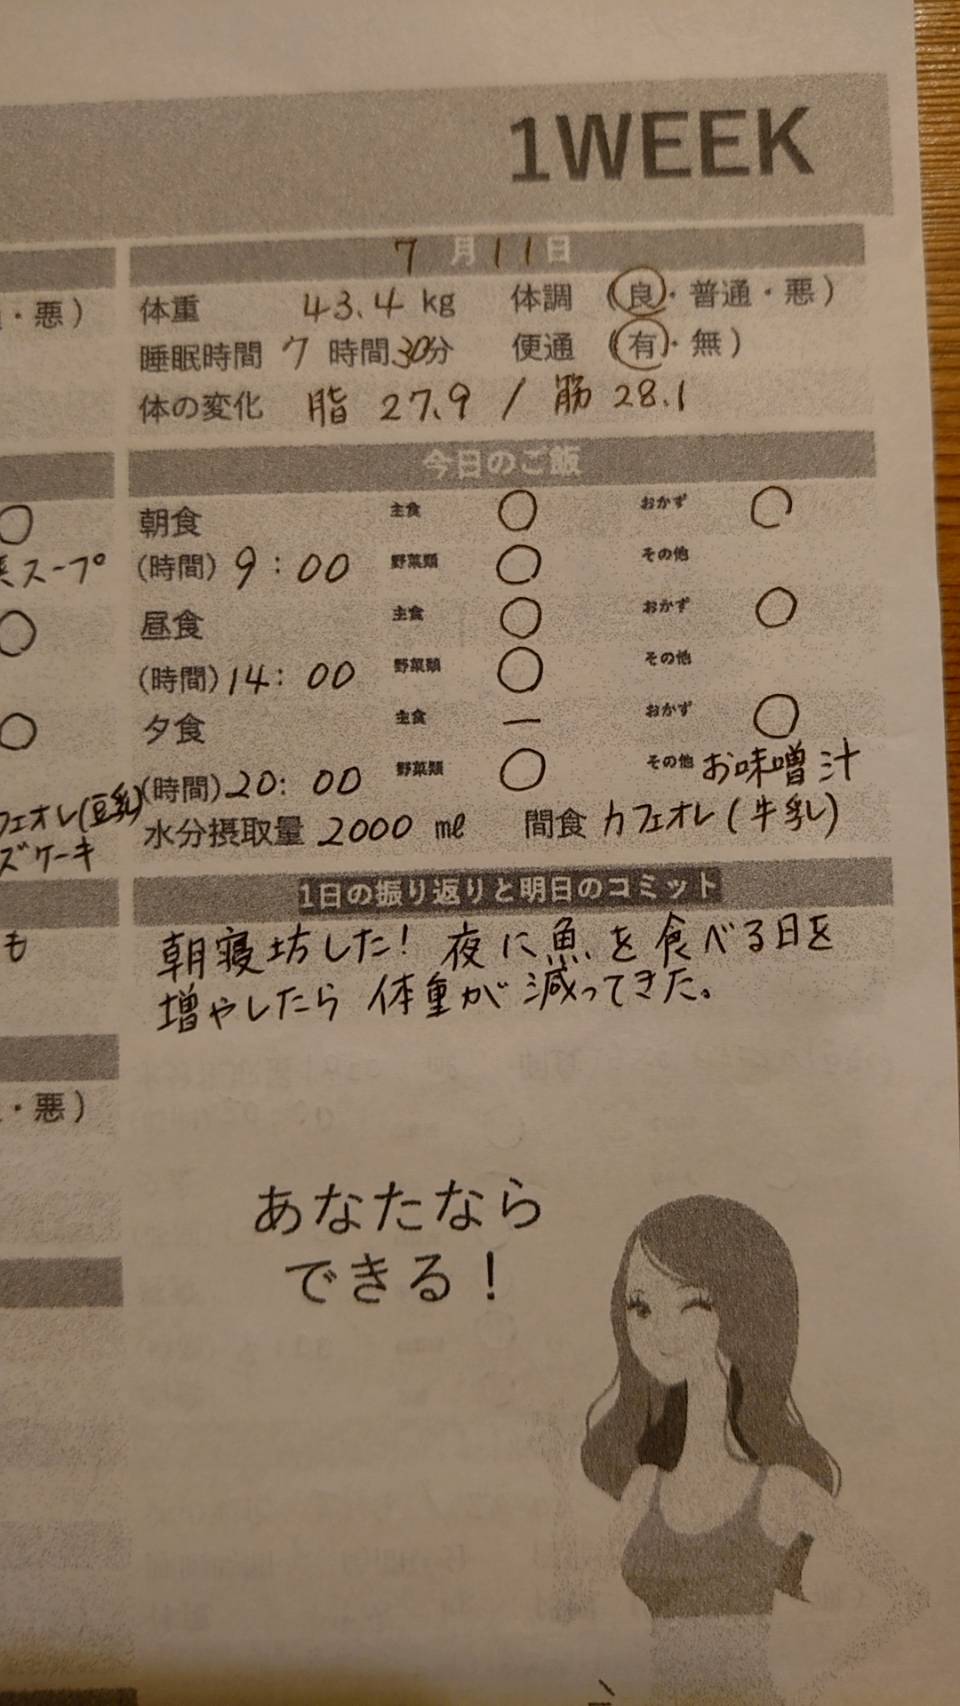 1WEEK
7月11日
・悪)
体重 43.4 kg 体調 (良・普通・悪)
睡眠時間 7時間30分 便通 (有・無)
体の変化 脂 27.9 / 筋 28.1
今日のご飯
朝食 主食 ○ おかず ○
スープ
(時間) 9:00 野菜類 ○ その他
昼食 主食 ○ おかず ○
(時間) 14:00 野菜類 ○ その他
夕食 主食 ー おかず ○
(時間) 20:00 野菜類 ○ その他 お味噌汁
フェオレ(豆乳)
水分摂取量 2000 ml 間食 カフェオレ(牛乳)
ズケーキ
1日の振り返りと明日のコミット
も
朝寝坊した! 夜に魚を食べる日を
増やしたら体重が減ってきた。
・悪)
あなたなら
できる!